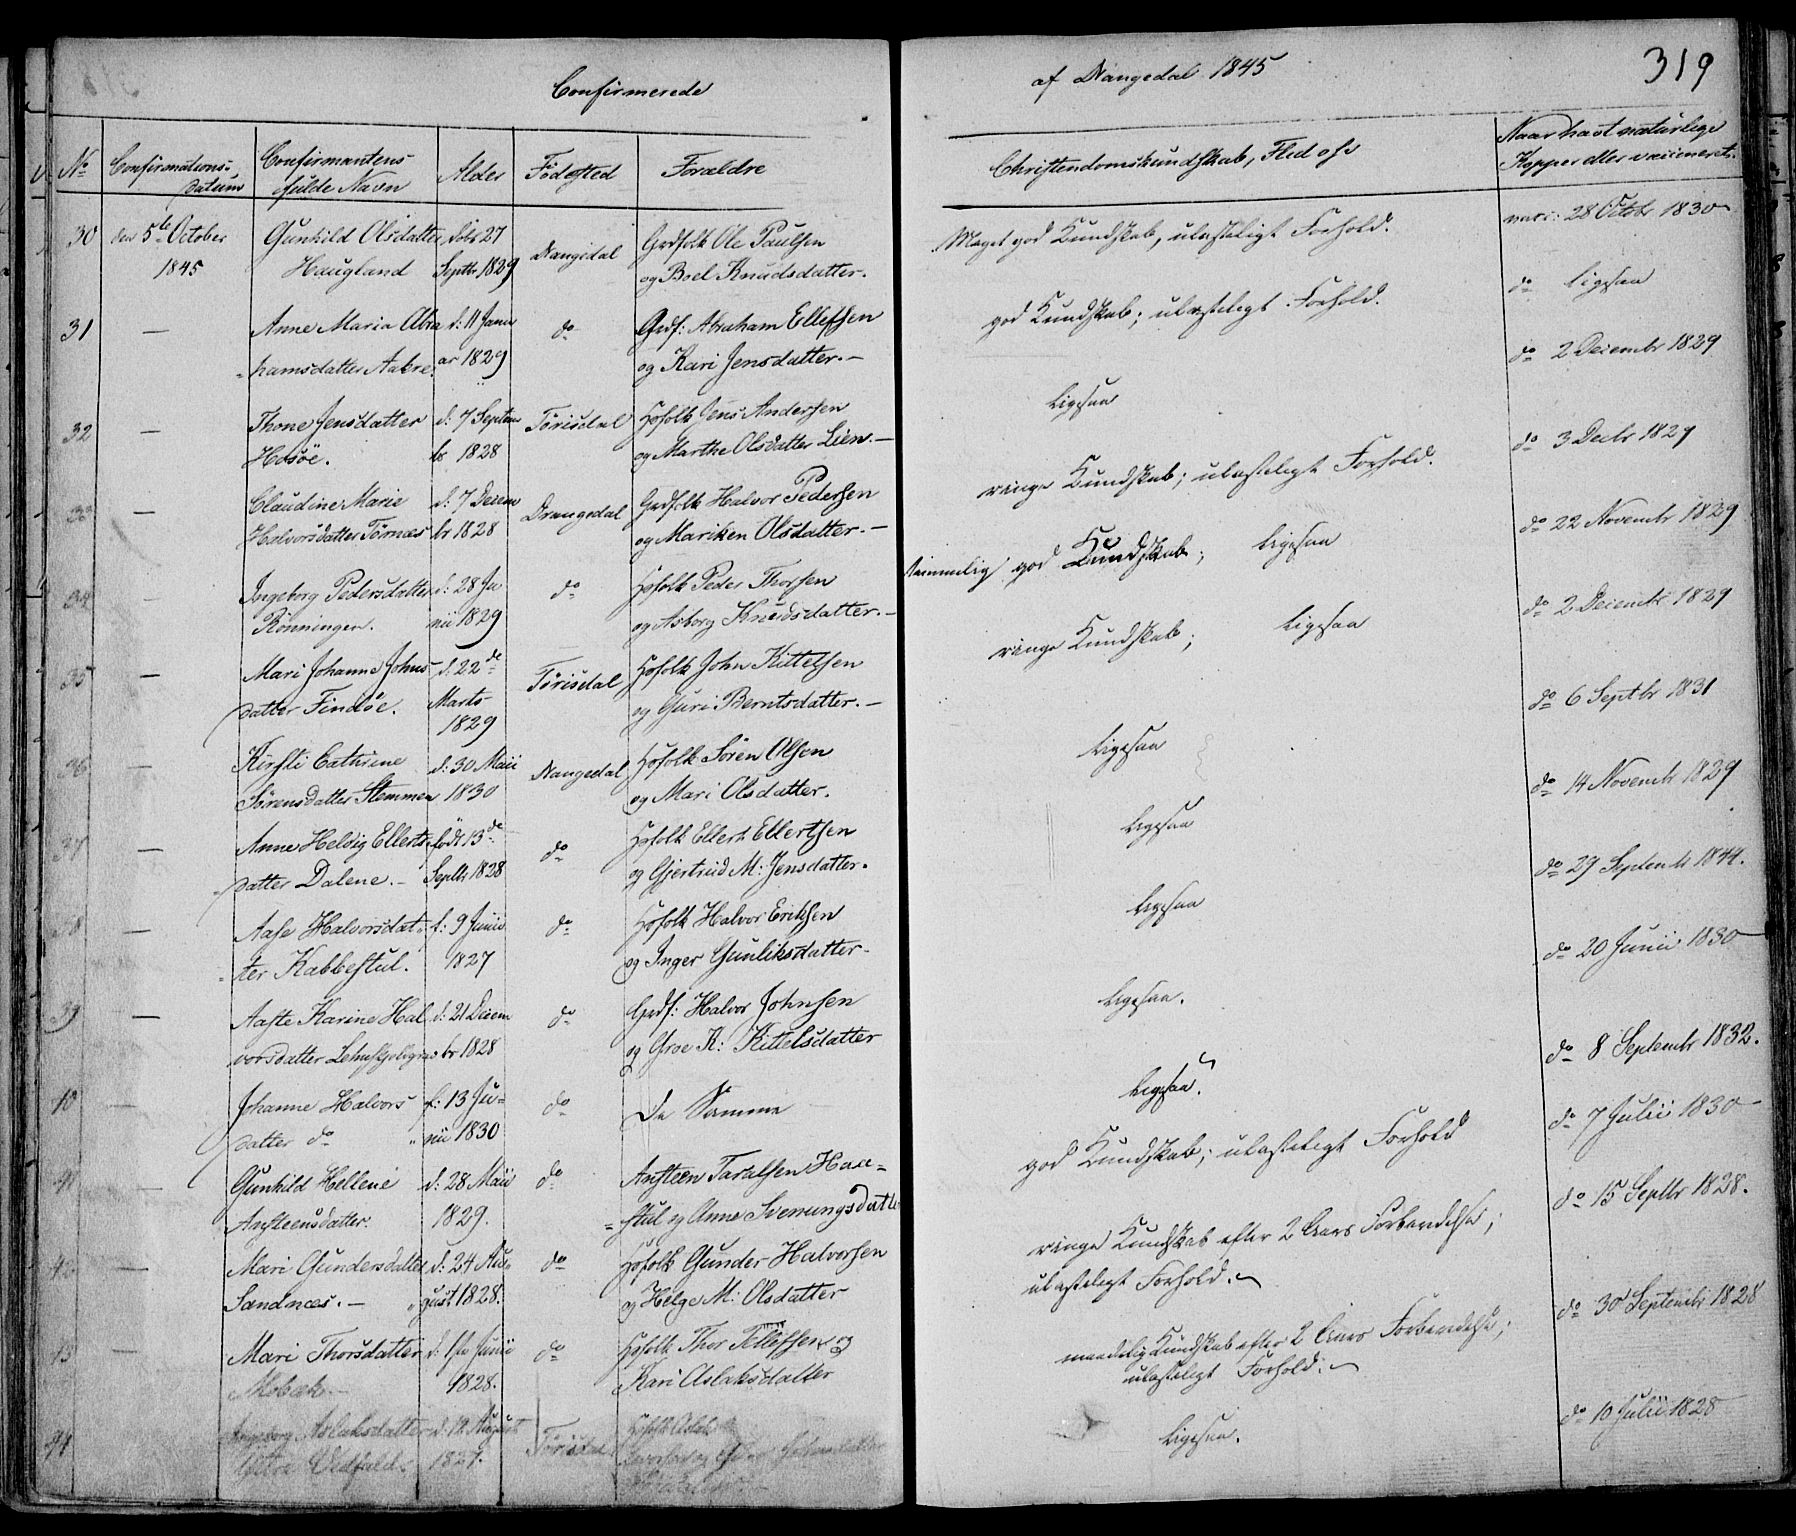 Confirmerede
af Drangedal 1845
319
No
Confirmations-
datum
Confirmantens
fulde Navn
Alder
Fødested
Forældre
Christendomskundskab, Flid osv
Naar havt naturlige
Kopper eller vaccineret
30
den 5te October
1845
Gunhild Olsdatter
Haugland
født 27
Septbr 1829
Drangedal
Grdfolk Ole Paulsen
og Boel Knudsdatter.
Meget god Kundskab, ulasteligt Forhold.
vacc: 28 Octobr 1830
31
—
Anne Maria Abra
hamsdatter Aakre.
d: 11 Janu
ar 1829
do
Grdf: Abraham Ellefsen
og Kari Jensdatter. —
god Kundskab; ulasteligt Forhold.
do ligesaa
32
—
Thone Jensdatter
Hosöe.
d: 7 Septem
br 1828
Tørisdal
Hsfolk Jens Andersen
og Marthe Olsdatter Lien. —
Ligesaa
do 2 Decembr 1829
33
—
Claudine Marie
Halvorsdatter Tørnes
d: 7 Decem
br 1828
Drangedal
Grdfolk Halvor Pedersen
og Mariken Olsdatter. —
ringe Kundskab; ulasteligt Forhold.
do 3 Decbr 1829
34
—
Ingeborg Pedersdatter
Rønningen.
d: 28 Ju
nii 1829
do
Hsfolk Peder Thorsen
og Asborg Knudsdatter. —
temmelig god Kundskab; ligesaa
do 22 Novembr 1829
35
—
Mari Johanne Johns
datter Findöe.
d: 22de
Marts
1829
Tørisdal
Hsfolk John Kittelsen
og Guri Berntsdatter. —
ringe Kundskab; ligesaa
do 2 Decembr 1829
36
—
Kirsti Cathrine
Sørensdatter Stemmen
d: 30 Maii
1830
Drangedal
Hsfolk Søren Olsen
og Mari Olsdatter.
Ligesaa
do 6 Septbr 1831
37
—
Anne Helvig Ellerts
datter Dalene. —
født 13de
Septbr 1828
do
Hsfolk Ellert Ellertsen
og Gjertrud M: Jensdatter.
Ligesaa
do 14 Novembr 1829
38
—
Aase Halvorsdat
ter Kabbestul.
f: 9 Junii
1827
do
Hsfolk Halvor Eriksen
og Inger Gunliksdatter
Ligesaa
do 29 Septembr 1844.
39
—
Aaste Karine Hal
vorsdatter
d: 21 Decem
br 1828
do
Grdf: Halvor Johnsen
og Groe K: Kittelsdatter
Ligesaa.
do 20 Junii 1830
40
—
Johanne Halvors
datter do
f: 13 Ju-
nii 1830
do
De Samme
Ligesaa.
do 8 Septembr 1832.
41
—
Gunhild Hellene
Ansteensdatter.
d: 28 Maii
1829.
do
Ansteen Taralsen
stul og Anne Svenungsdatter
god Kundskab; ulasteligt Forhold
do 7 Julii 1830
42
—
Mari Gundersdatter
Sandnæs. —
d: 24 Au-
gust 1828.
do
Hsfolk Gunder Halvorsen
og Helge M: Olsdatter
ringe Kundskab efter 2 Aars Forberedelse;
ulasteligt Forhold.
do 15 Septbr 1828.
43
—
Mari Thorsdatter
Mobæk. —
d: 1ste Junii
1828.
do
Hsfolk Thor Tellefsen og
Kari Aslaksdatter
maadelig Kundskab efter 2 Aars Forberedelse;
ulasteligt Forhold.
do 30 Septembr 1828
44
Ingeborg Aslaksdatter
Ytre Vedfald.
d: 12 August
1827.
Tørisdal
Hsfolk Aslak
Ligesaa.
do 10 Julii 1828